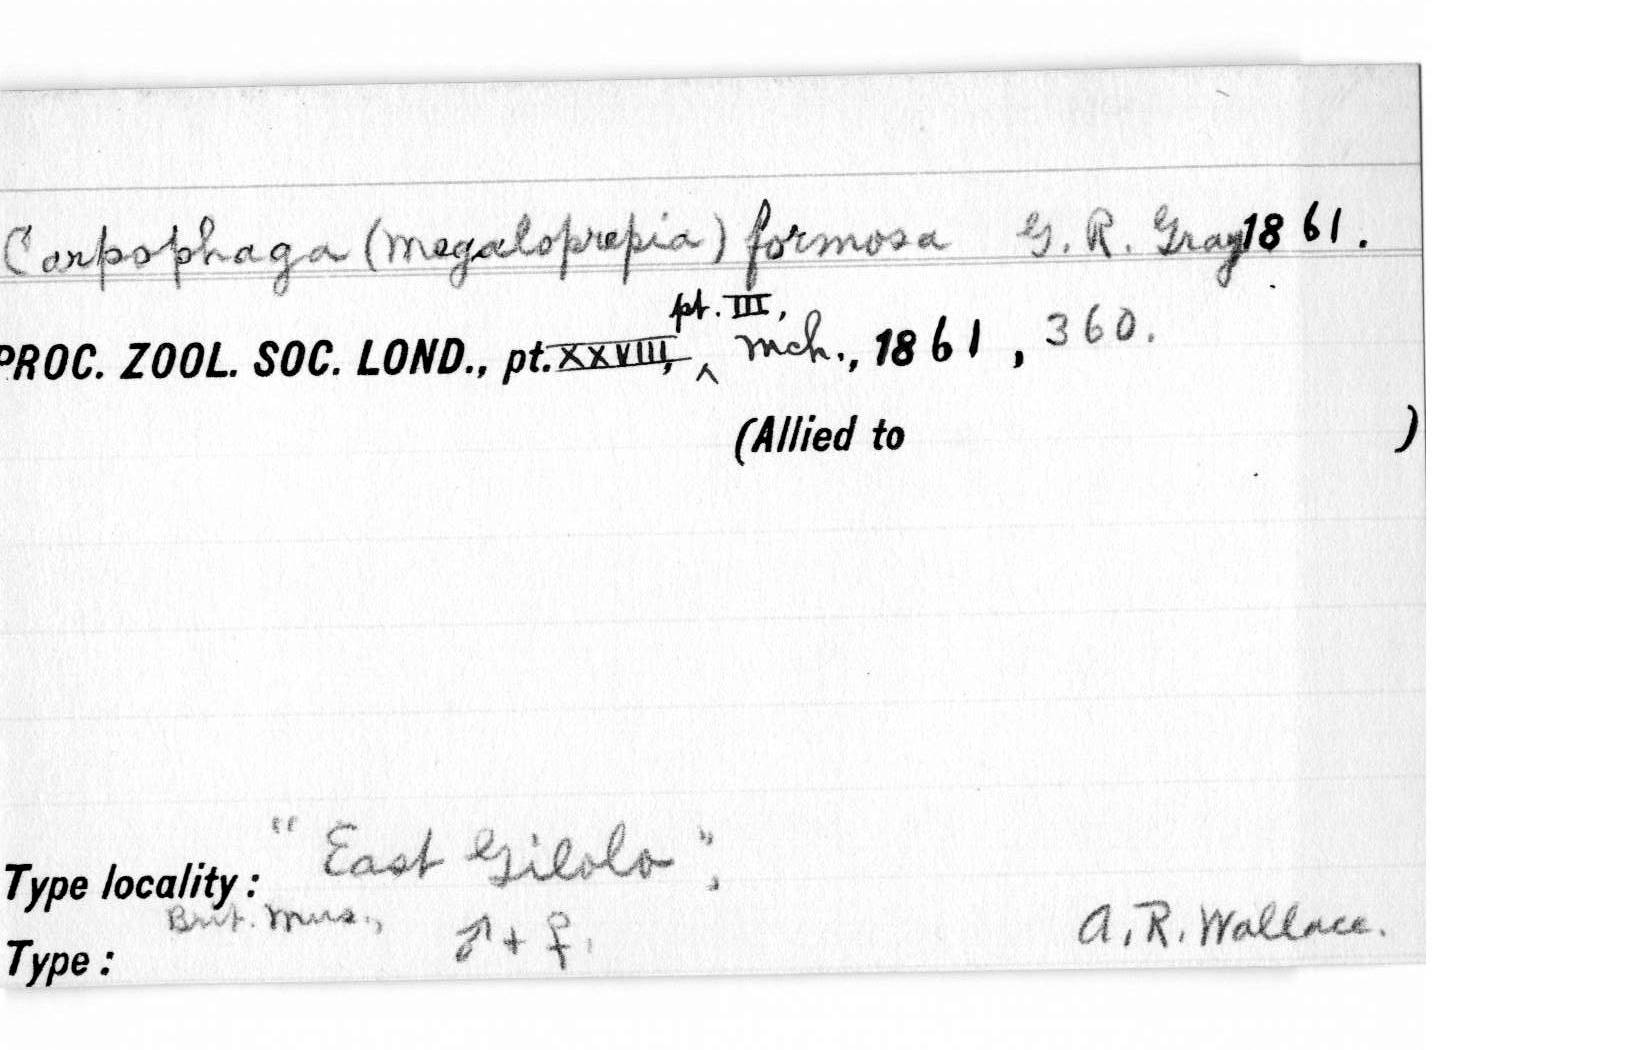 Carpophaga (Megaloprepia) formosa G. R. Gray 1861.
pt. III,
PROC. ZOOL. SOC. LOND., pt. XXVIII, ^ Mch., 1861, 360.
(Allied to )
Type locality: "East Gilolo";
Brit. Mus., ♂ + ♀. A. R. Wallace.
Type: